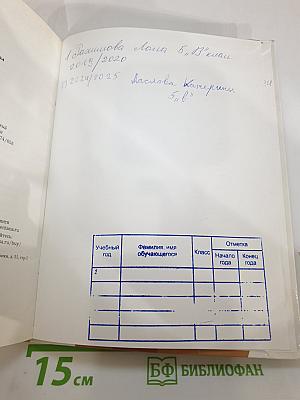 1 Рахимова Лола 5 „В" класс
2019/2020
2) 2024/2025 Маслова Катерина
5 „в"
Учебный год
Фамилия, имя обучающегося
Класс
Отметка
Начало года
Конец года
1
15 см
БФ БИБЛИОФАН